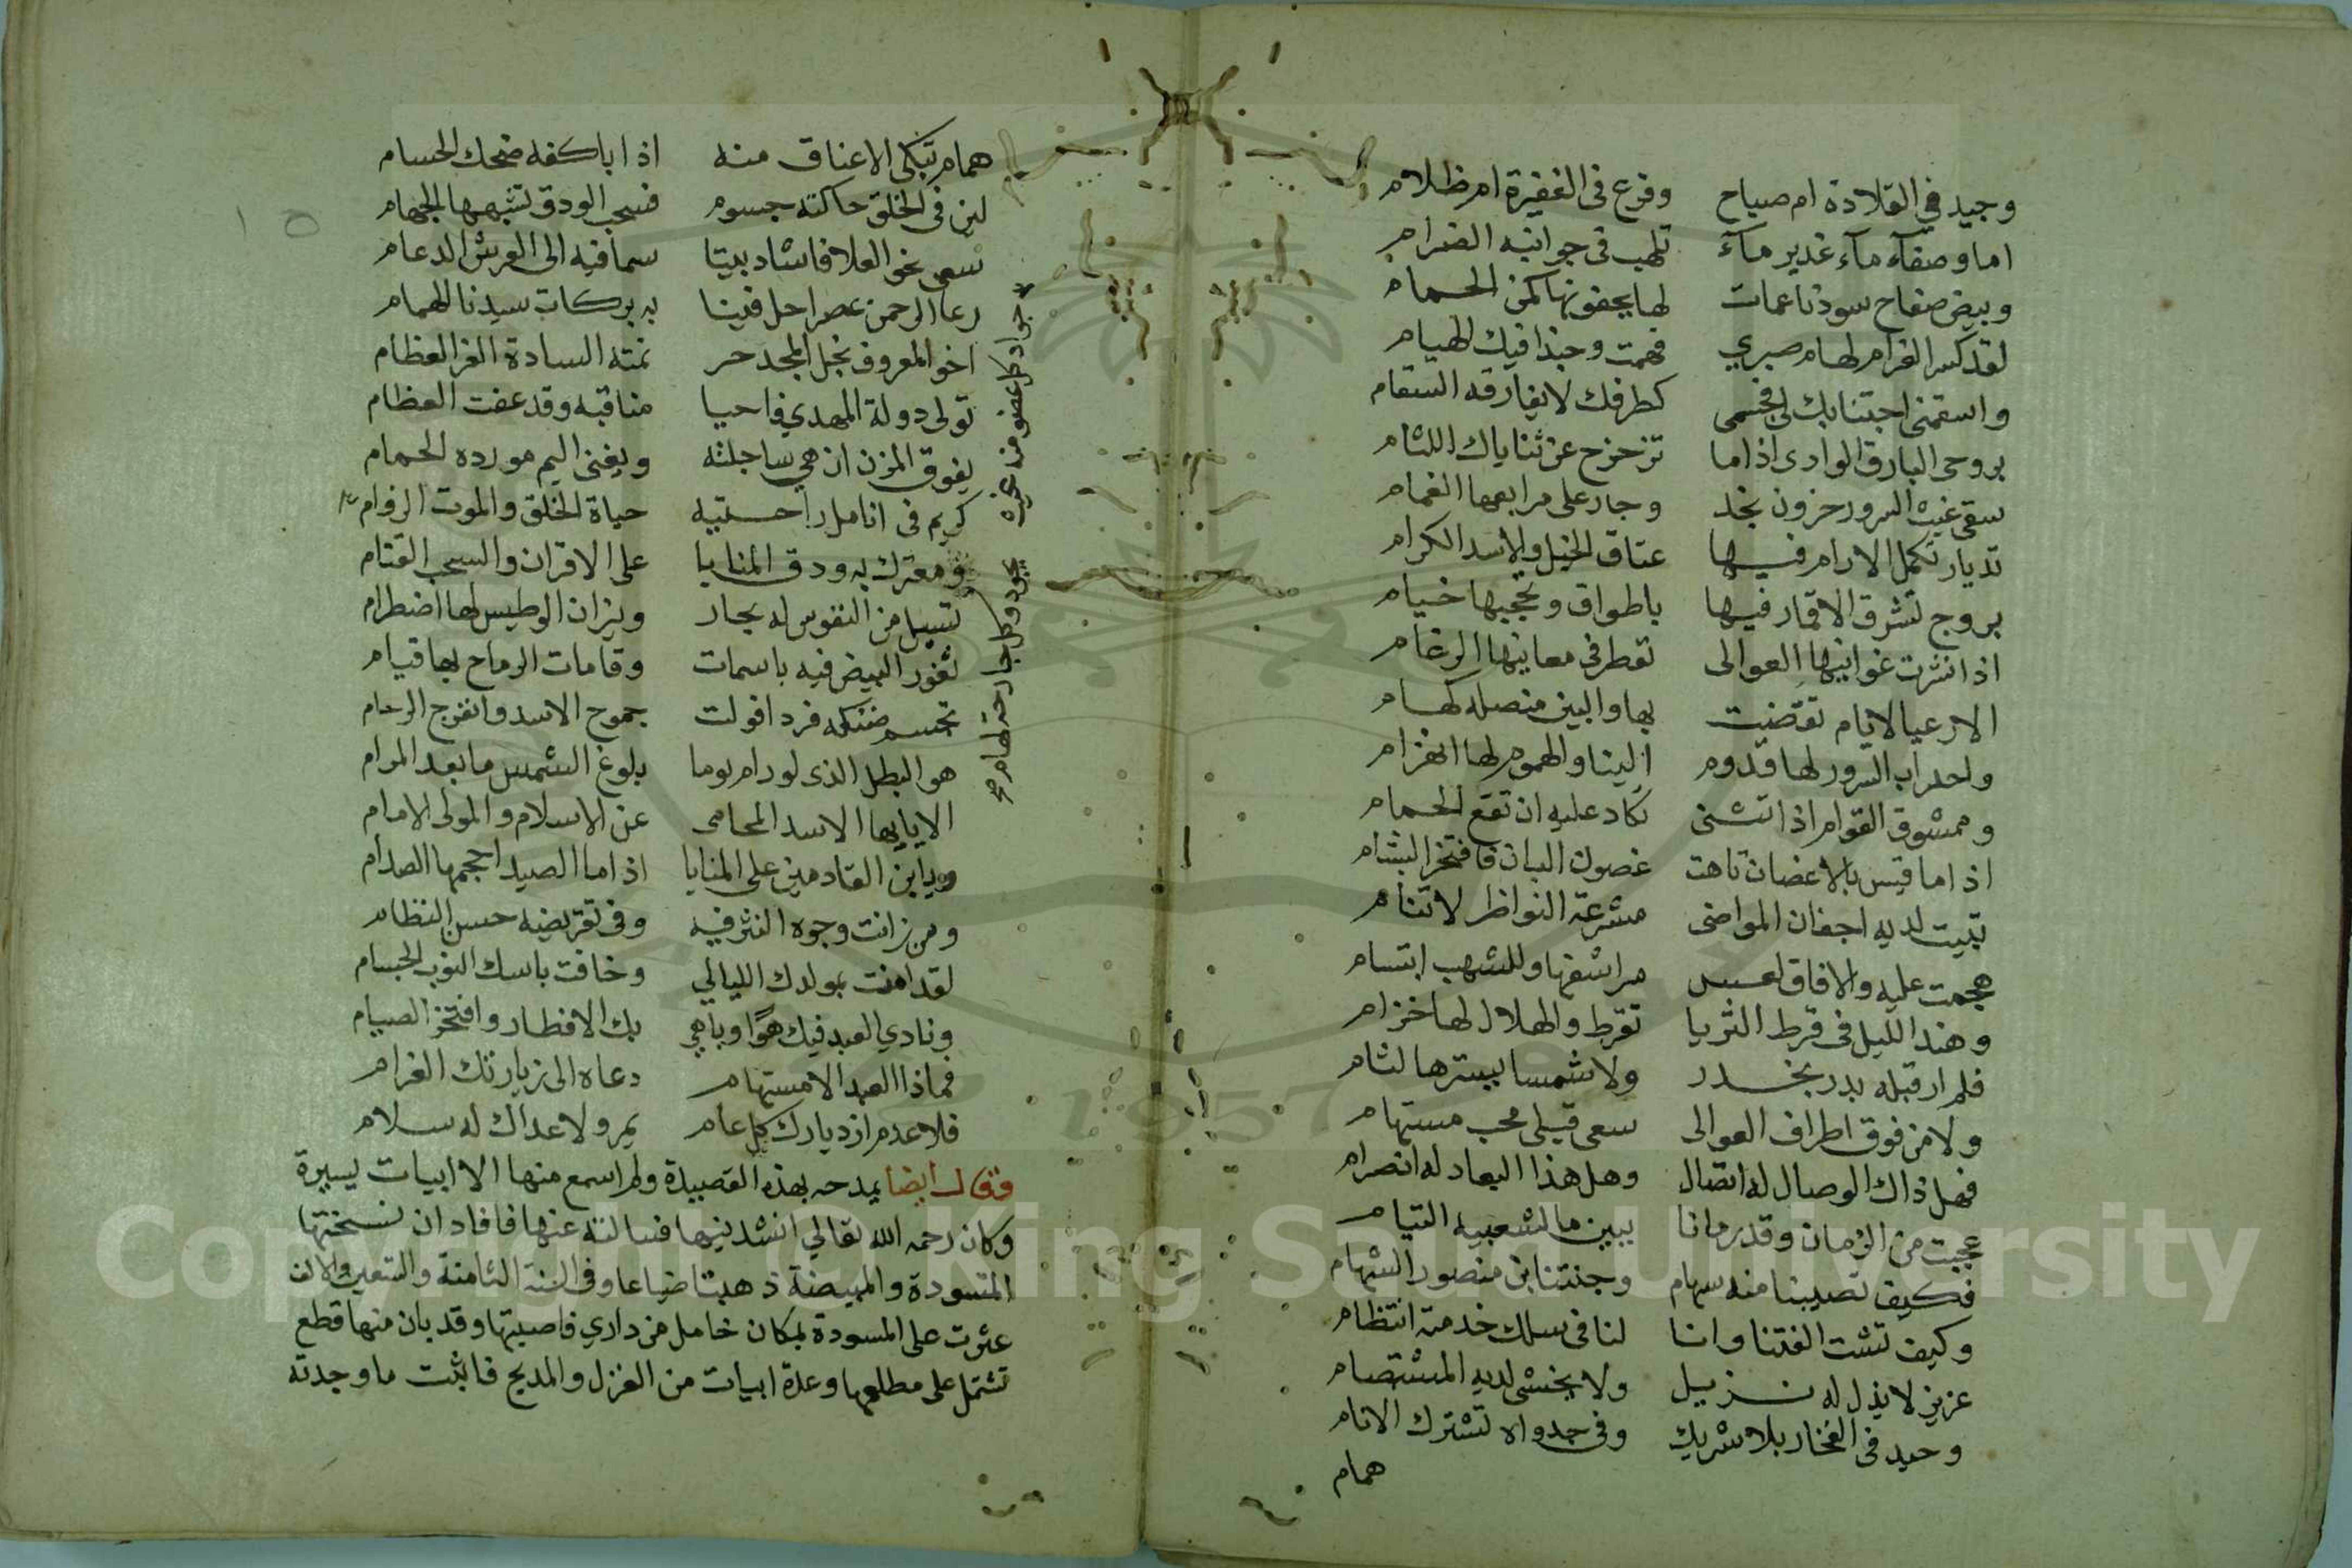 وجيد في القلادة ام صباح وفرع في الغفيرة ام ظلام
اما وصفآء مآء غدير مآء تلهب في جوانبه الضرام
وبيض صفاح سود ناعمات لها بجفونها كمن الحمام
لقد كسر الغرام لهام صبري فهمت وحبذا فيك الهيام
واسقمني اجتنابك لي فجسمي كطرفك لا يفارقه السقام
بروحي البارق الوارى اذا ما تزحزح عن ثناياك اللثام
سقى غيث السرور حزون نجد وجاد على مرابعها الغمام
تديار تكمل الارام فيها عتاق الخيل والاسد الكرام
بروج تشرق الاقمار فيها باطواق وتحجبها خيام
اذا نشرت غوانيها العوالى تعطر في مغانيها الرغام
الا رعيا لايام تقضت بها والبين منصله كهام
واحداب السرور لها قدوم الينا والهموم لها انهزام
وممشوق القوام اذا تثنى تكاد عليه ان تقع الحمام
اذا ما قيس بالاغصان تاهت غصون البان فافتخر البشام
تبيت لديه اجفان المواضى مشرعة النواظر لا تنام
هجمت عليه والافاق لعس مراشفها وللشهب ابتسام
وهند الليل في قرط الثريا تقرط والهلال لها خزام
فلم ار قبله بدر بخدر ولا شمسا يسترها لثام
ولا من فوق اطراف العوالى سعى قبلي محب مستهام
فهل ذاك الوصال له اتصال وهل هذا البعاد له انصرام
عجبت من الزمان وقد رمانا ببين ما لشعبيه التيام
فكيف تصيبنا منه سهام وجنتنا ابن منصور الشهام
وكيف تشت الفتنا وانا لنا في سلك خدمته انتظام
عزيز لا يذل له نزيل ولا يخشى لديه المستضام
وحيد في الفخار بلا شريك وفى جدواه تشترك الانام
همام
همام تبكي الاعناق منه اذا باكفه ضحك الحسام
لئن في الخلق حاكته جسوم فسحب الودق تشبهها الجهام
سعى نحو العلا فاشاد بيتا سما فيه الى العرش الدعام
رعا الرحمن عصرا حل فينا به بركات سيدنا الهمام
اخو المعروف نجل المجد حر نمته السادة الغر العظام
تولى دولة المهدي فاحيا مناقبه وقد عفت العظام
يفوق المزن ان هي ساجلته ويغنى اليم مورده الحمام
كريم في انامل راحتيه حياة الخلق والموت الزوام
ومعترك به ودق المنايا على الاقران والسحب القتام
تسيل من النفوس له بحار ونيزان الوطيس لها اضطرام
ثغور البيض فيه باسمات وقامات الرماح بها قيام
تجسم ضنكه فرد افولت جموح الاسد وانفرج الزحام
هو البطل الذى لو رام يوما بلوغ الشمس ما بعد المرام
الا يايها الاسد المحامى عن الاسلام والمولى الامام
ويابن القادمين على المنايا اذا ما الصيد احجمها الصدام
ومن زانت وجوه النثر فيه وفى تقريضه حسن النظام
لقد امنت بمولدك الليالي وخافت باسك النوب الجسام
ونادي العيد فيك هوًا وباهي بك الافطار وافتخر الصيام
فماذا العيد الا مستهام دعاه الى زيارتك الغرام
فلا عدم ازديارك كل عام يمر ولا عداك له سلام
وقال ايضا يمدحه بهذه القصيدة ولم اسمع منها الا ابيات يسيرة
وكان رحمه الله تعالي انشدنيها فسالته عنها فافاد ان نسختها
المتسودة والمبيضة ذهبتا ضياعا وفى السنة الثامنة والتسعين والالف
عثرت على المسودة بمكان خامل من داري فاصبتها وقد بان منها قطع
تشتمل على مطلعها وعدة ابيات من الغزل والمديح فاثبت ما وجدته
جواد كل عضو منه غيث يجود وكل جارحة لهام صح
١٥
Copyright © King Saud University
1957